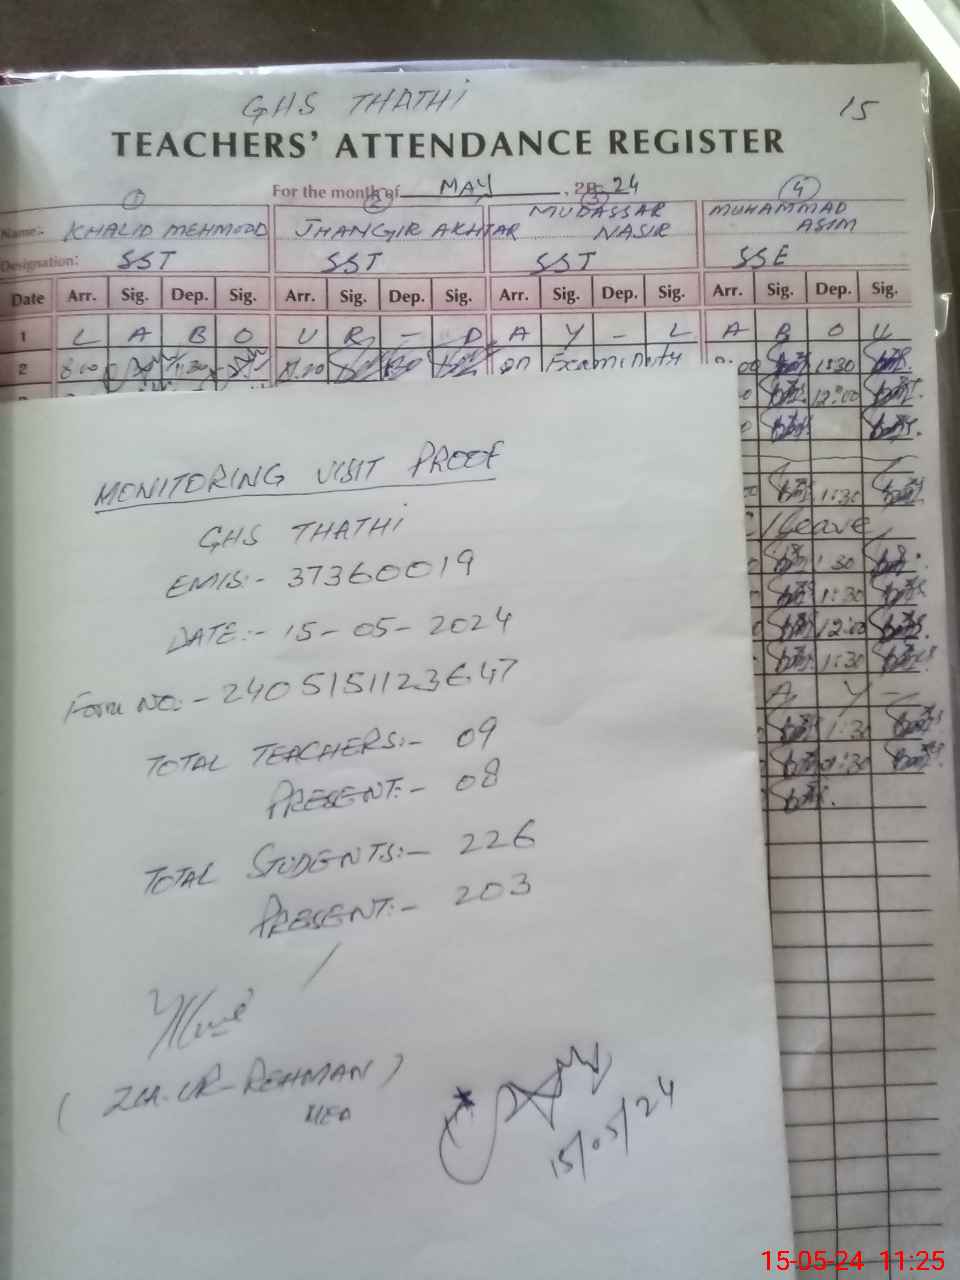 GHS THATHI
15
TEACHERS' ATTENDANCE REGISTER
For the month of MAY , 20 24
1 2 3 4
Name:- KHALID MEHMOOD JHANGIR AKHTAR MUDASSAR NASIR MUHAMMAD ASIM
Designation: SST SST SST SSE
Date Arr. Sig. Dep. Sig. Arr. Sig. Dep. Sig. Arr. Sig. Dep. Sig. Arr. Sig. Dep. Sig.
1 L A B O U R - D A Y - L A B O U
2 8:00 1:30 8:00 on Exam Duty :00 1:30
12:00
1:30
C/Leave
1:30
1:30
12:00
1:30
A Y -
1:30
01:30
MONITORING VISIT PROOF
GHS THATHI
EMIS:- 37360019
DATE:- 15-05-2024
Form NO:- 2405151123647
TOTAL TEACHERS:- 09
PRESENT:- 08
TOTAL STUDENTS:- 226
PRESENT:- 203
(ZIA-UR-REHMAN)
MEA
15/05/24
15-05-24 11:25